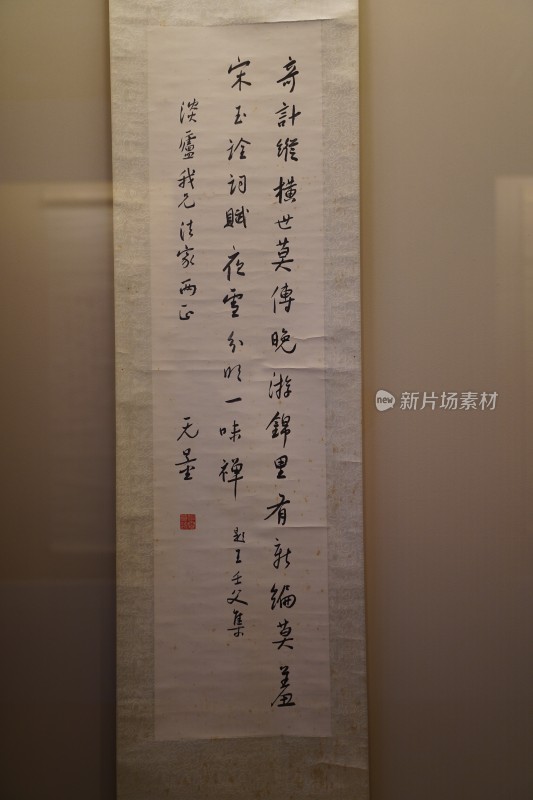 奇計縱橫世莫傳晚游錦里有新編莫羞
宋玉詮詞賦夜雪分明一味禪
題王壬父集
淡廬我兄法家兩正
无量
new 新片场素材